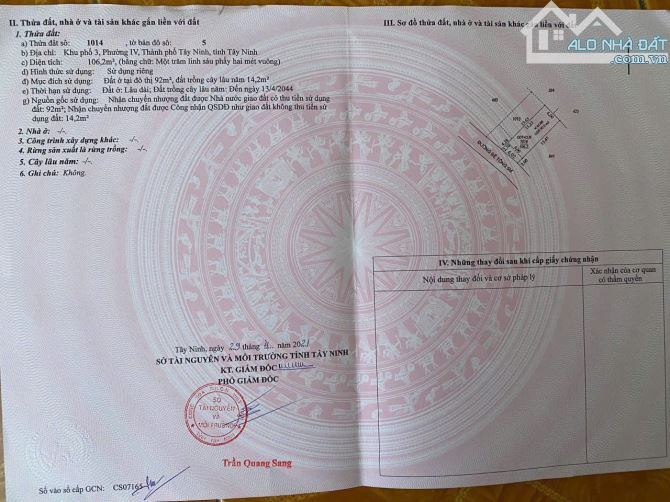 II. Thửa đất, nhà ở và tài sản khác gắn liền với đất
1. Thửa đất:
a) Thửa đất số: 1014 , tờ bản đồ số: 5
b) Địa chỉ: Khu phố 3, Phường IV, Thành phố Tây Ninh, tỉnh Tây Ninh
c) Diện tích: 106,2m², (bằng chữ: Một trăm linh sáu phẩy hai mét vuông)
d) Hình thức sử dụng: Sử dụng riêng
đ) Mục đích sử dụng: Đất ở tại đô thị 92m², đất trồng cây lâu năm 14,2m²
e) Thời hạn sử dụng: Đất ở: Lâu dài; Đất trồng cây lâu năm: Đến ngày 13/4/2044
g) Nguồn gốc sử dụng: Nhận chuyển nhượng đất được Nhà nước giao đất có thu tiền sử dụng
đất: 92m²; Nhận chuyển nhượng đất được Công nhận QSDĐ như giao đất không thu tiền sử
dụng đất: 14,2m²
2. Nhà ở: -/-
3. Công trình xây dựng khác: -/-
4. Rừng sản xuất là rừng trồng: -/-
5. Cây lâu năm: -/-
6. Ghi chú: Không.
Tây Ninh, ngày 29 tháng 4 năm 2021
SỞ TÀI NGUYÊN VÀ MÔI TRƯỜNG TỈNH TÂY NINH
KT. GIÁM ĐỐC
PHÓ GIÁM ĐỐC
SỞ
TÀI NGUYÊN
VÀ
MÔI TRƯỜNG
Trần Quang Sang
Số vào sổ cấp GCN: CS0716
III. Sơ đồ thửa đất, nhà ở và tài sản khác gắn liền với đất
ALO NHÀ ĐẤT
.com.vn
ĐƯỜNG BÊ TÔNG 6M
IV. Những thay đổi sau khi cấp giấy chứng nhận
Nội dung thay đổi và cơ sở pháp lý
Xác nhận của cơ quan
có thẩm quyền